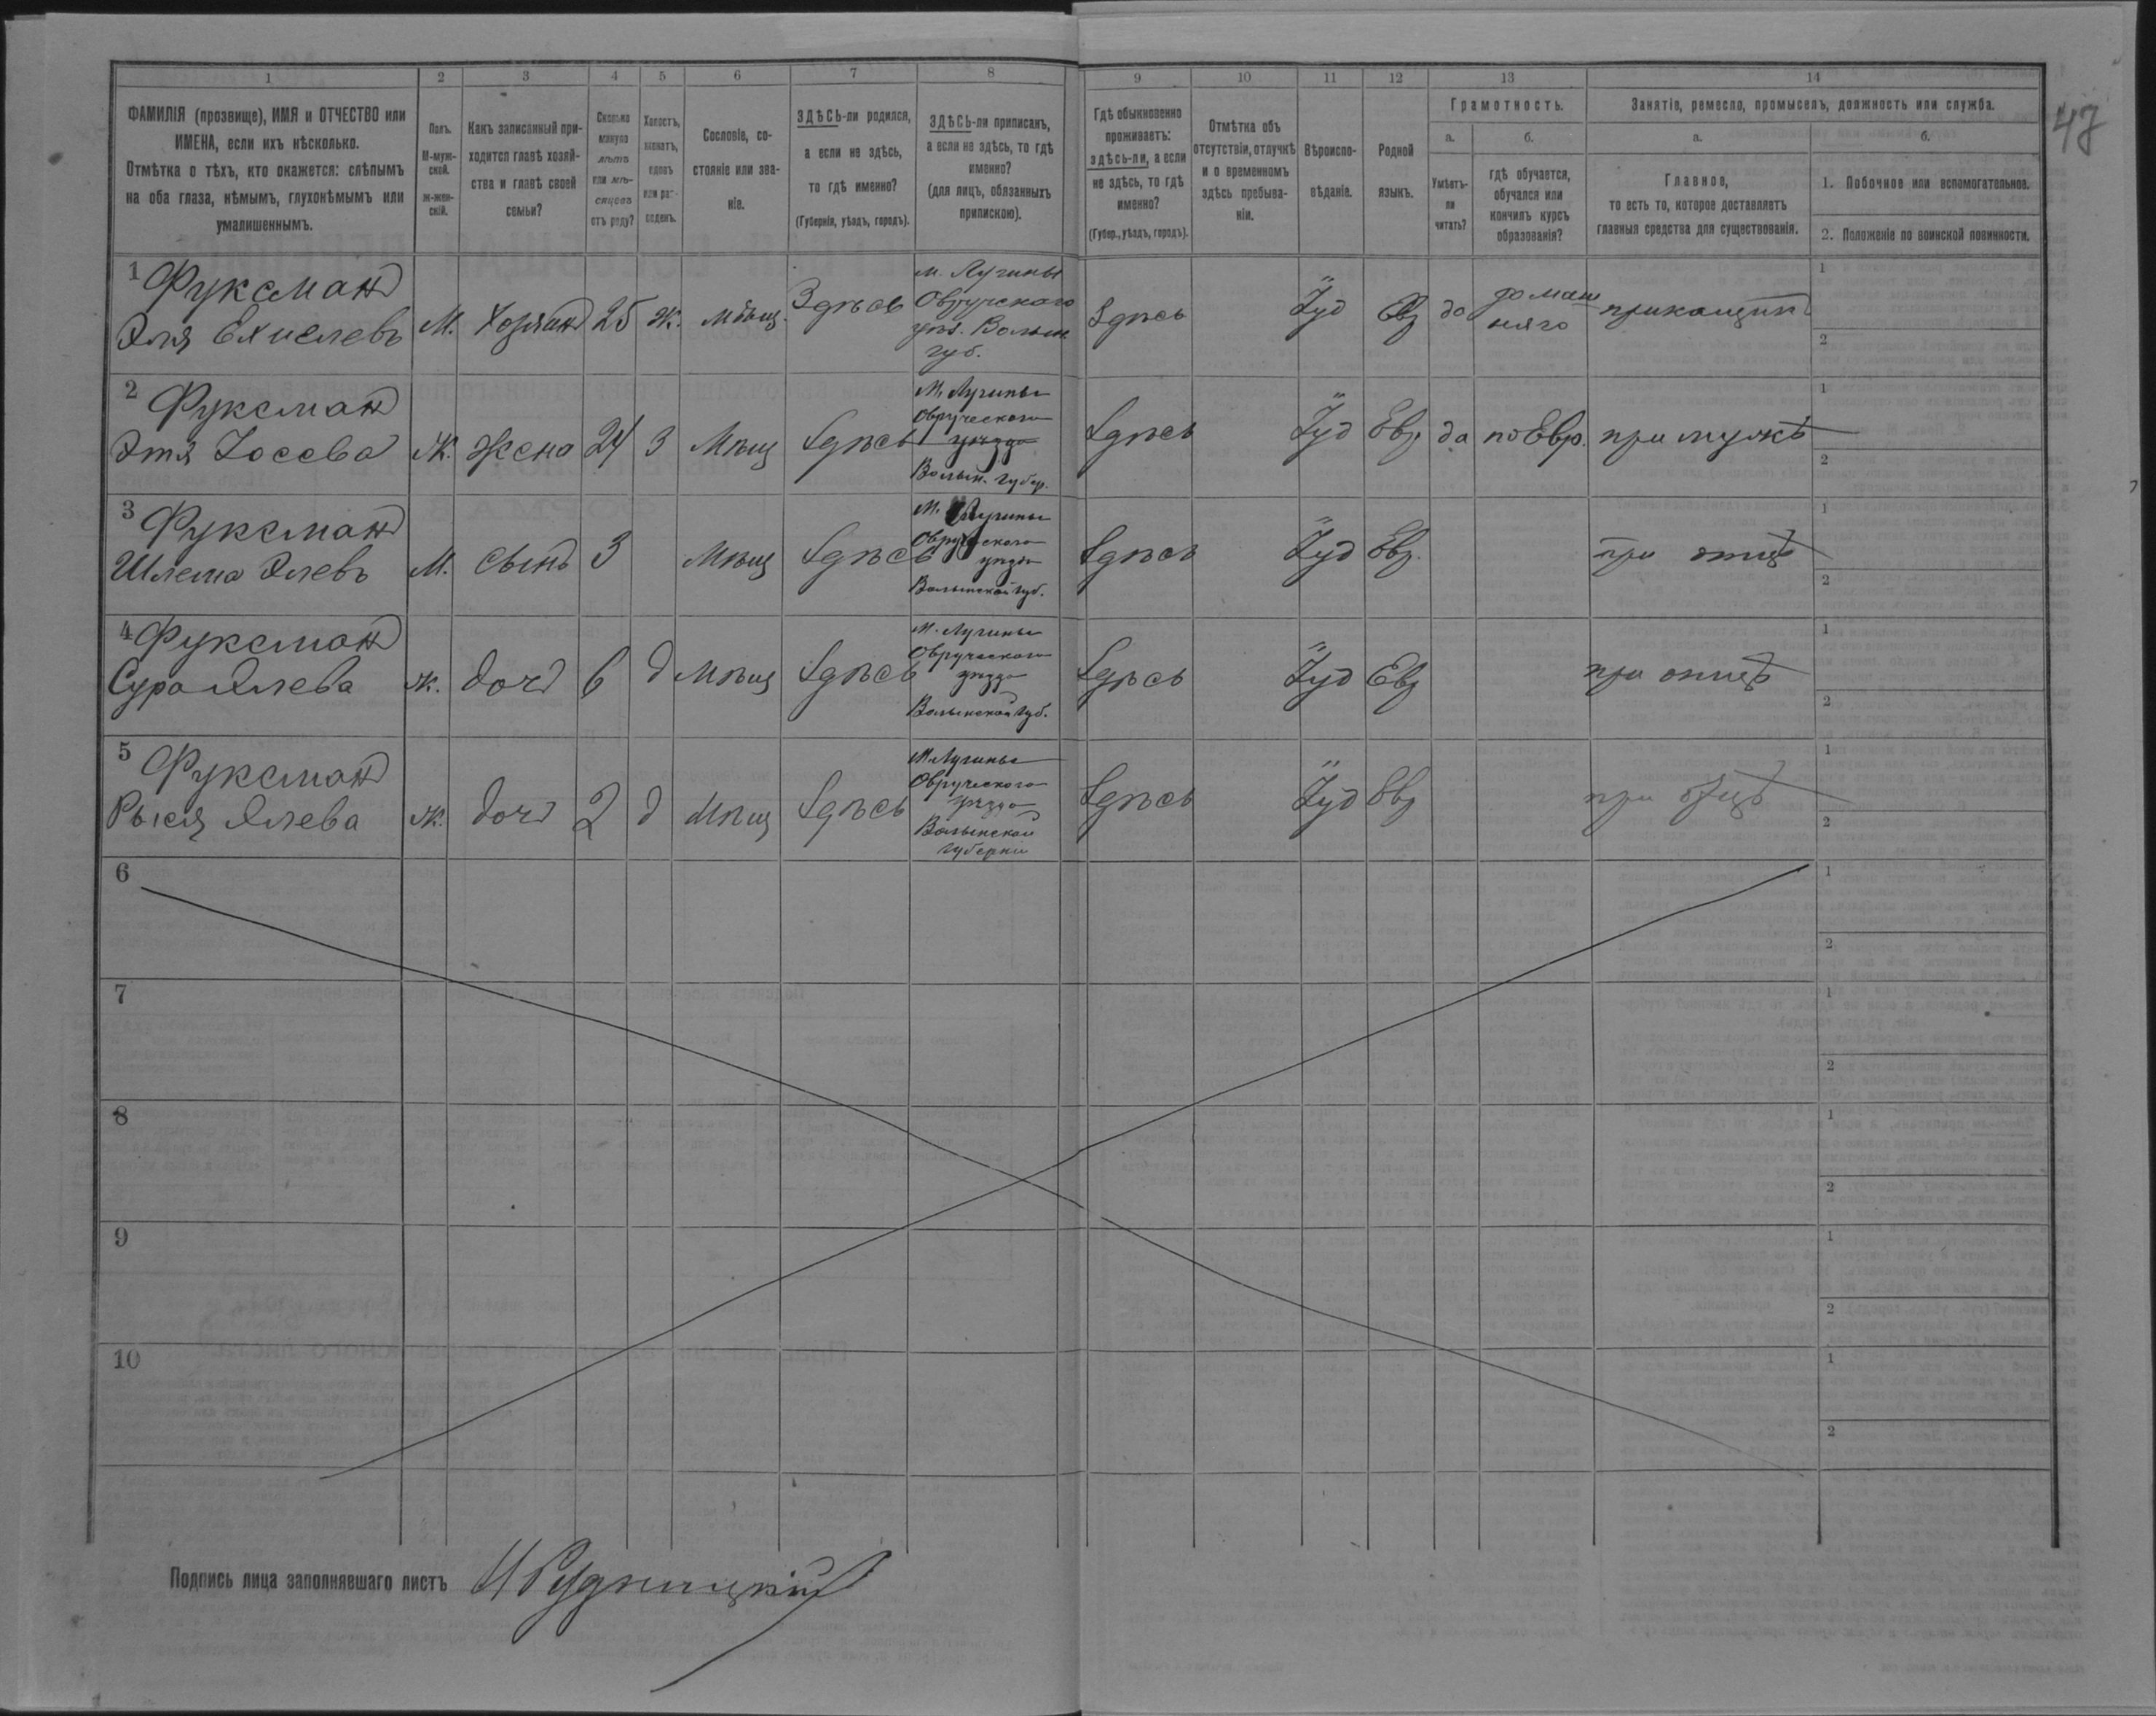 1 2 3 4 5 6 7 8 9 10 11 12 13 14
ФАМИЛІЯ (прозвище), ИМЯ и ОТЧЕСТВО или
ИМЕНА, если ихъ нѣсколько.
Отмѣтка о тѣхъ, кто окажется: слѣпымъ
на оба глаза, нѣмымъ, глухонѣмымъ или
умалишеннымъ.
Полъ.
М-муж-
ской.
ж-жен-
скій.
Какъ записанный при-
ходится главѣ хозяй-
ства и главѣ своей
семьи?
Сколько
минуло
лѣтъ
или мѣ-
сяцевъ
отъ роду?
Холостъ,
женатъ,
вдовъ
или раз-
веденъ.
Сословіе, со-
стояніе или зва-
ніе.
ЗДѢСЬ-ли родился,
а если не здѣсь,
то гдѣ именно?
(Губернія, уѣздъ, городъ).
ЗДѢСЬ-ли приписанъ,
а если не здѣсь, то гдѣ
именно?
(для лицъ, обязанныхъ
припискою).
Гдѣ обыкновенно
проживаетъ:
здѣсь-ли, а если
не здѣсь, то гдѣ
именно?
(Губер., уѣздъ, городъ).
Отмѣтка объ
отсутствіи, отлучкѣ
и о временномъ
здѣсь пребыва-
ніи.
Вѣроиспо-
вѣданіе.
Родной
языкъ.
Грамотность.
а.
Умѣетъ-
ли
читать?
б.
гдѣ обучается,
обучался или
кончилъ курсъ
образованія?
Занятіе, ремесло, промыселъ, должность или служба.
а.
Главное,
то есть то, которое доставляетъ
главныя средства для существованія.
б.
1. Побочное или вспомогательное.
2. Положеніе по воинской повинности.
47
1 Фуксман
Эля Ехиелевъ
М.
Хозяин
25
ж.
мѣщ.
Здѣсь
м. Лугины
Овручскаго
уѣз. Волын.
губ.
Здѣсь
Іуд
Евр
да
домаш
няго
прикащик
1
2
2 Фуксман
Этя Іосева
Ж.
Жена
24
З
Мѣщ
Здѣсь
М. Лугины
Овруческаго
уѣзда
Волын. губер.
Здѣсь
Іуд
Евр
да
по Евр.
при мужѣ
1
2
3 Фуксман
Шлема Элевъ
М.
Сынъ
3
Мѣщ
Здѣсь
М. Лугины
Овруческаго
уѣзда
Волынской губ.
Здѣсь
Іуд
Евр.
при отцѣ
1
2
4 Фуксман
Сура Элева
ж.
доч
6
д
Мѣщ
Здѣсь
М. Лугины
Овруческаго
уѣзда
Волынской губ.
Здѣсь
Іуд
Евр
при отцѣ
1
2
5 Фуксман
Рыся Элева
Ж.
доч
2
д
Мѣщ
Здѣсь
М. Лугины
Овруческаго
уѣзда
Волынской
губерніи
Здѣсь
Іуд
Евр
при отцѣ
1
2
6
1
2
7
1
2
8
1
2
9
1
2
10
1
2
Подпись лица заполнявшаго листъ И Рудницкій